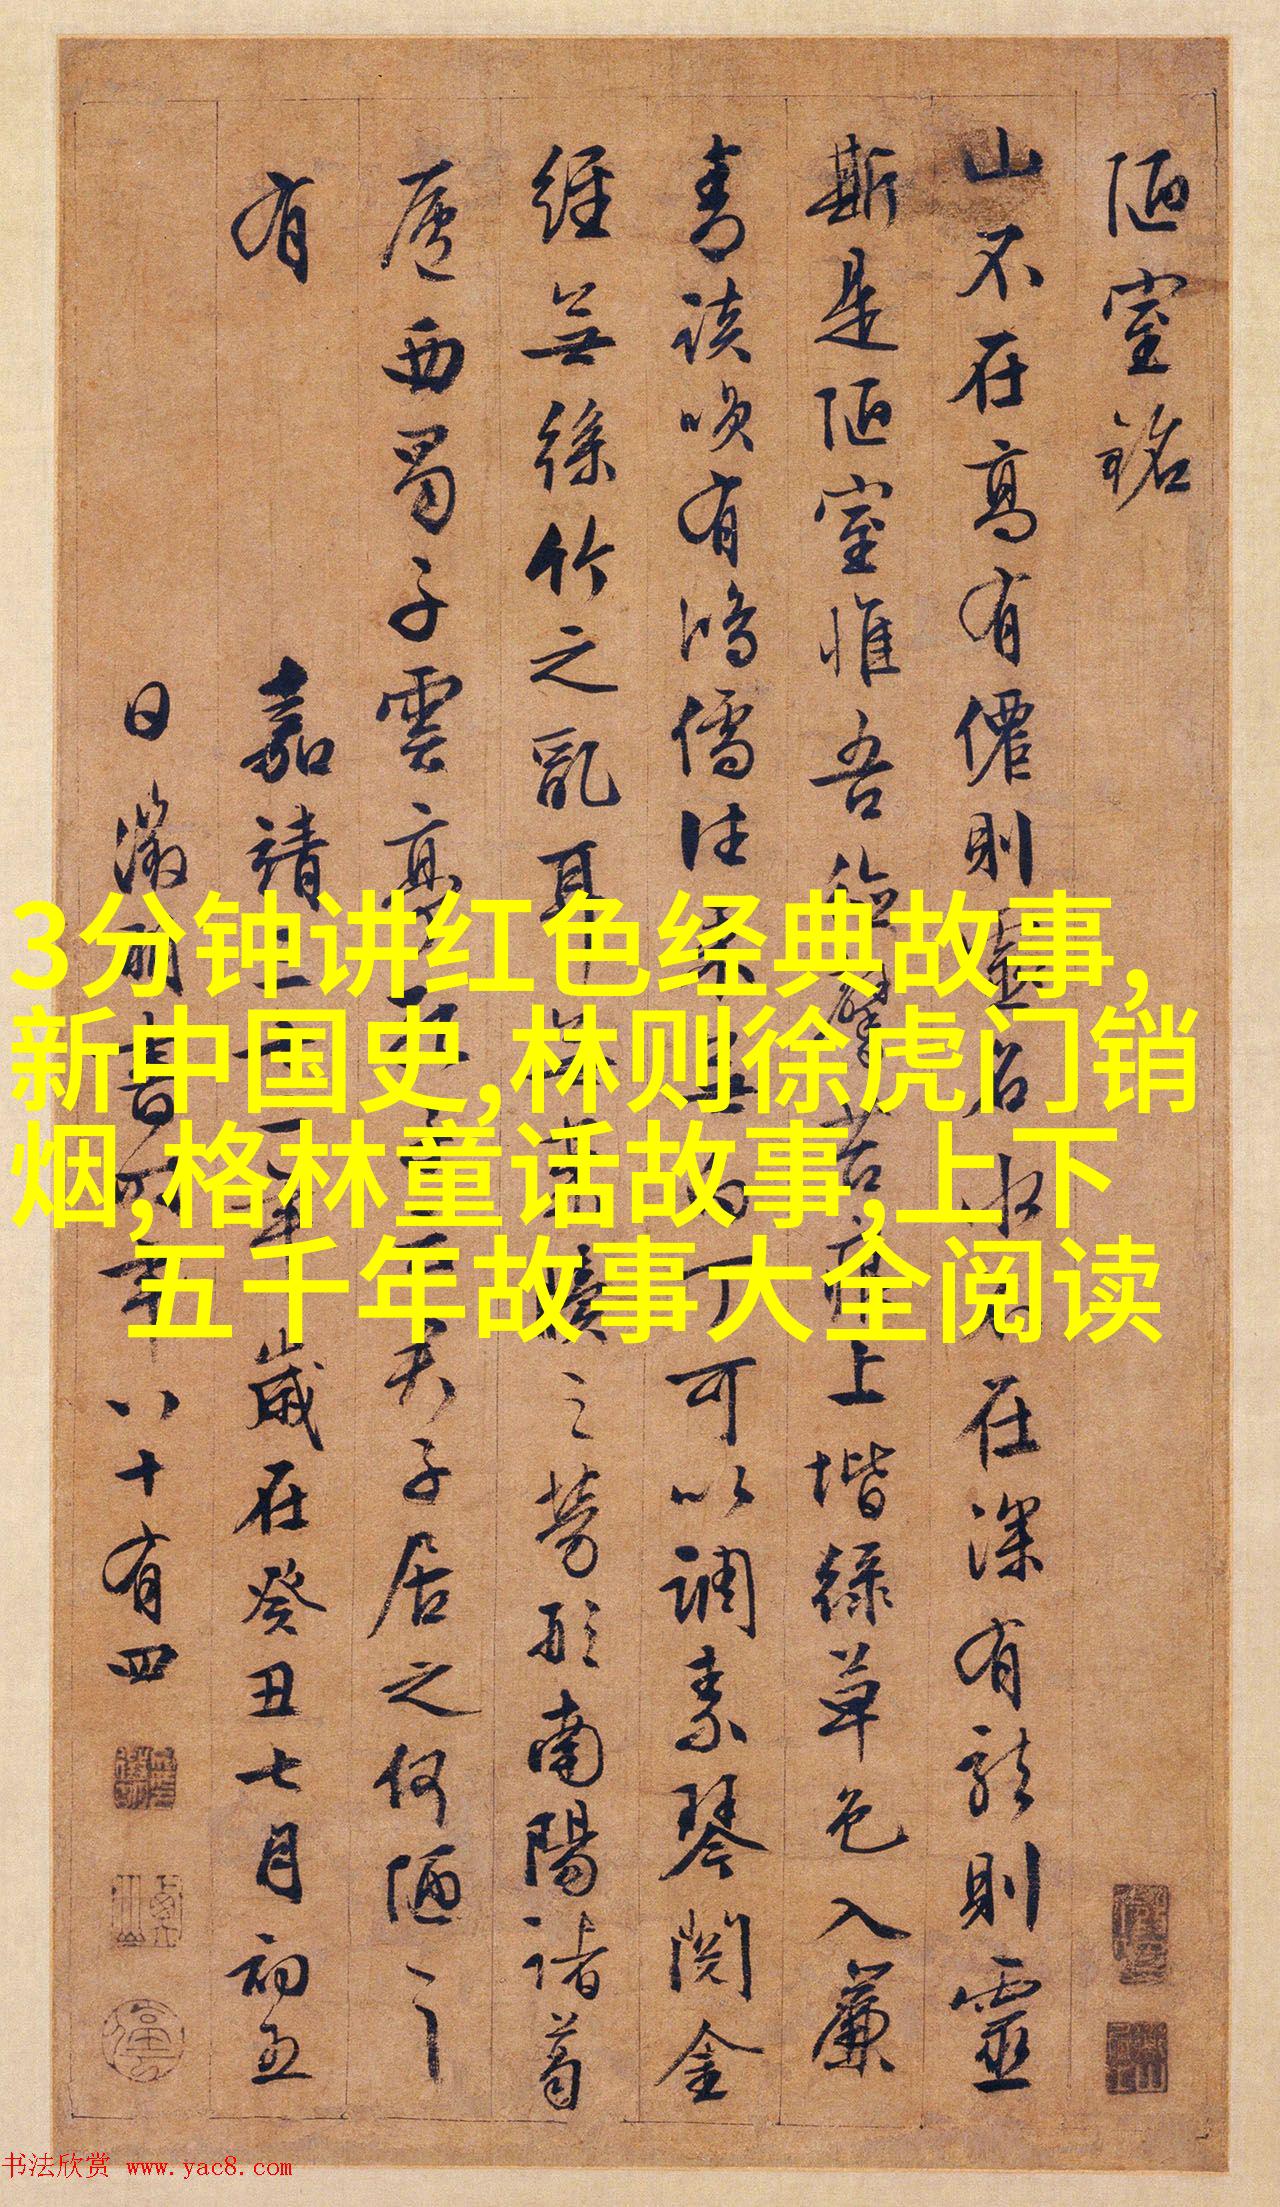 陋室銘
山不在高有僊則
在深有龍則靈
斯是陋室惟吾
上堦綠草色入簾
青談唉有鴻儒往
可以調素琴閱金
經無絲竹之亂耳
之勞形南陽諸葛
廬西蜀子雲亭
夫子居之何陋之
有
嘉靖
歲在癸丑七月初五
日徵明書
八十有四
3分钟讲红色经典故事,
新中国史,林则徐虎门销
烟,格林童话故事,上下
五千年故事大全阅读
书法欣赏 www.yac8.com